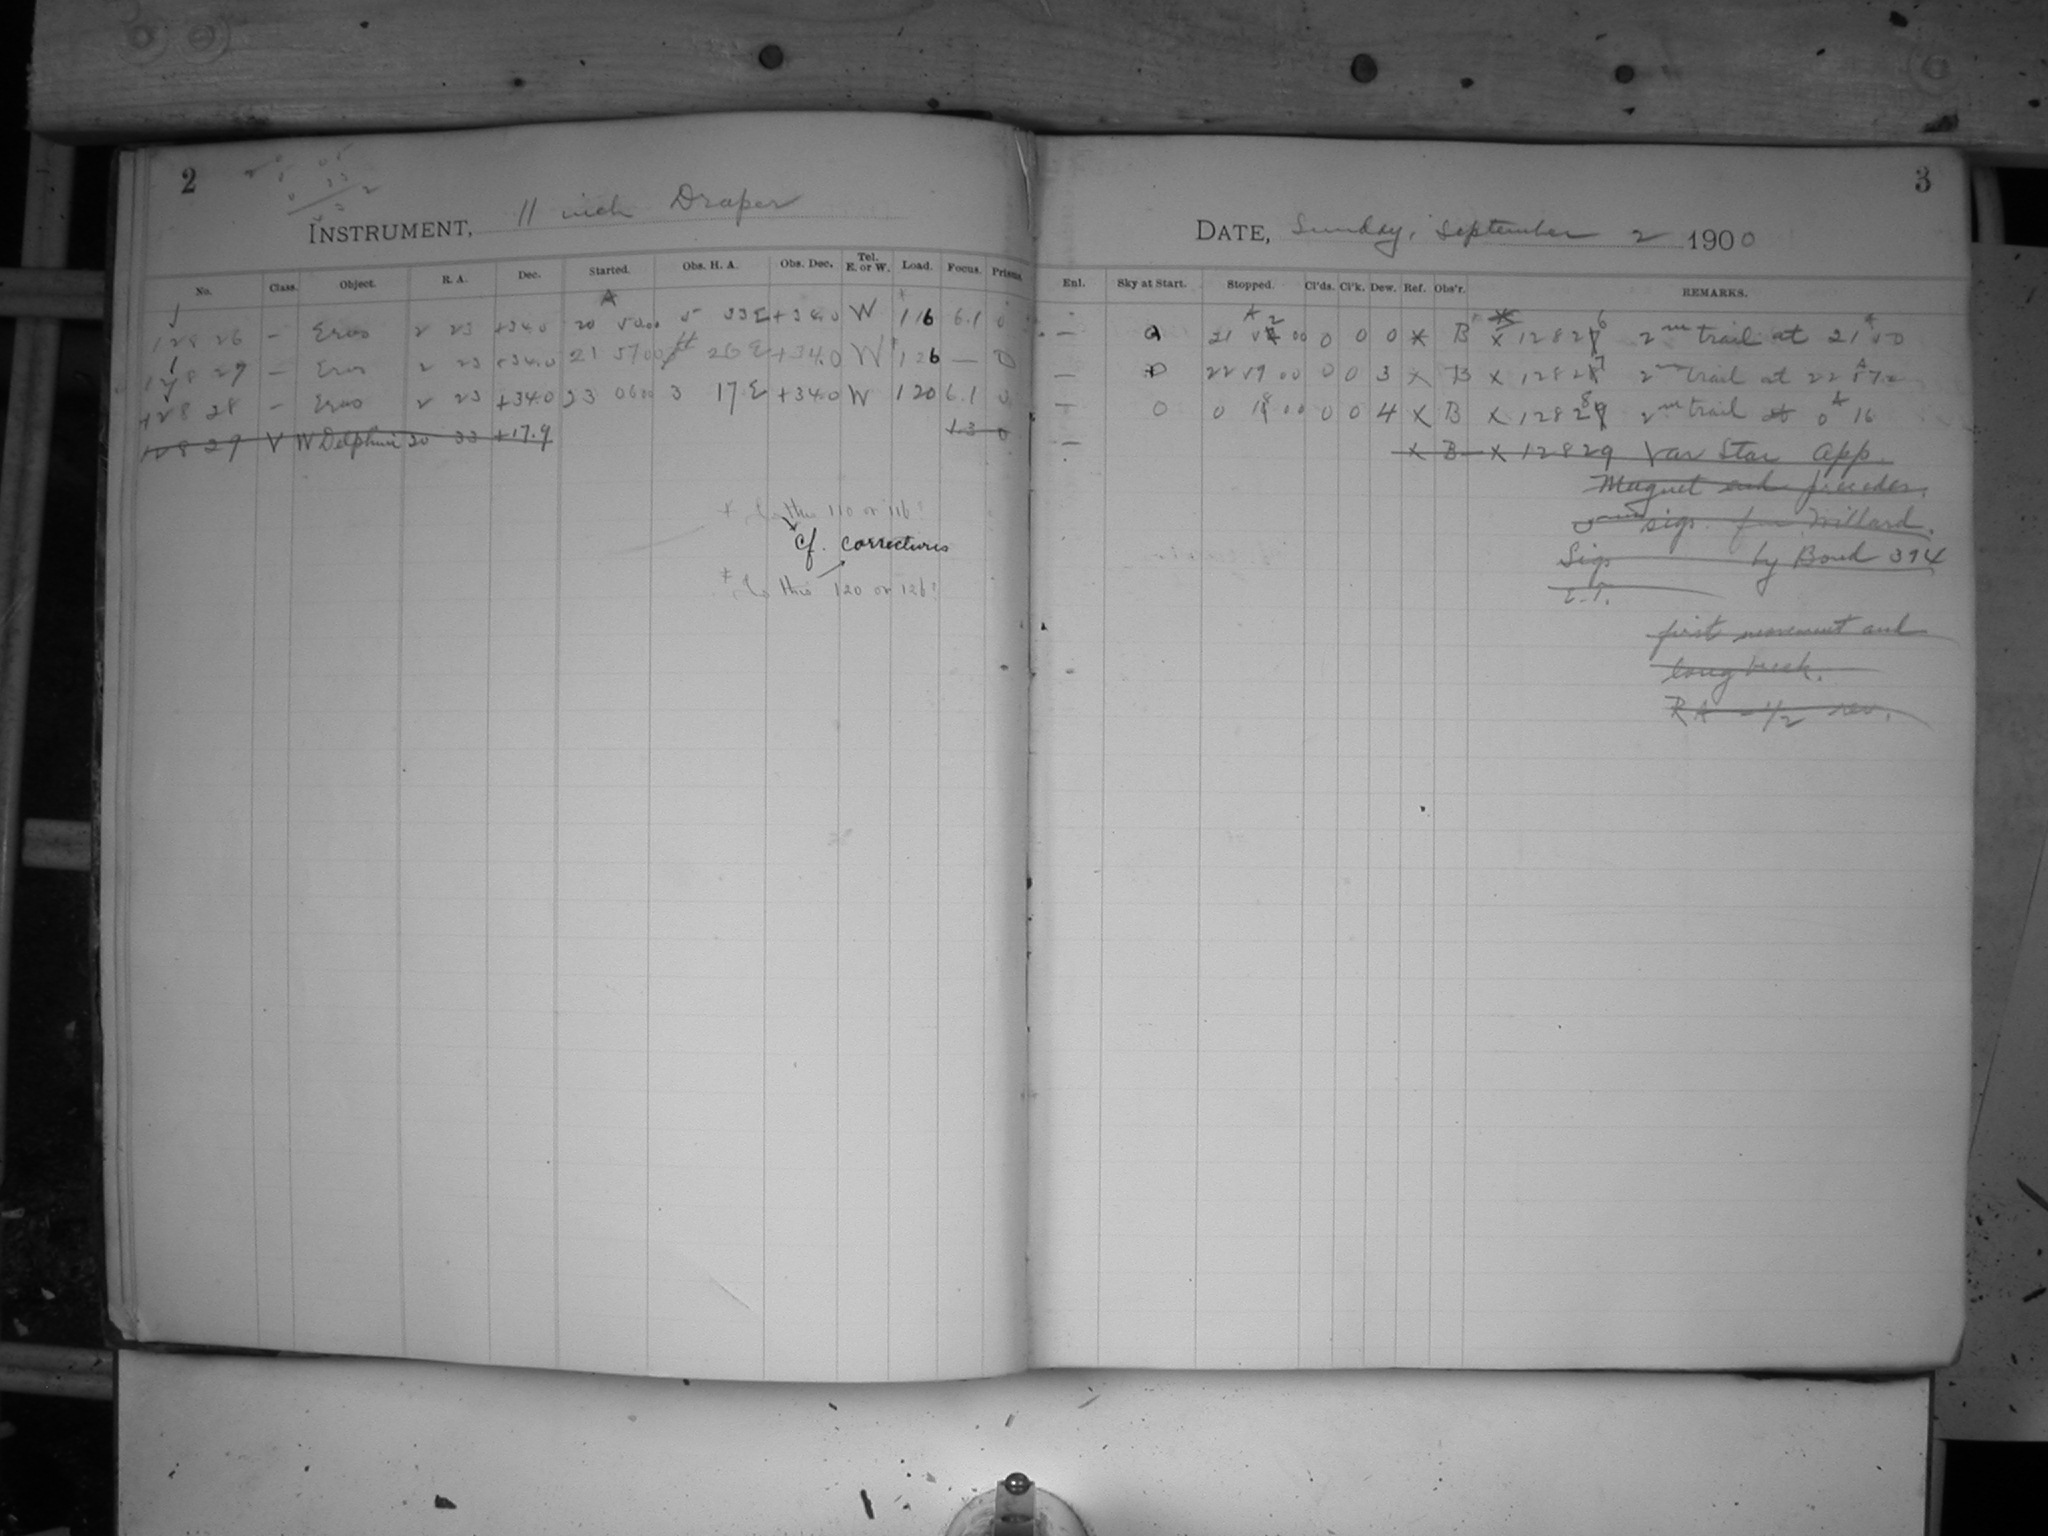 2
INSTRUMENT, 11 inch Draper
No. Class. Object. R. A. Dec. Started. Obs. H. A. Obs. Dec. Tel. E. or W. Load. Focus. Prisms.
12826 – Eros 2 23 +34.0 20 5000 5 33E +34.0 W 116 6.1 0
– Eros 2 23 +34.0 21 5700 26E +34.0 W 126 — 0
12828 – Eros 2 23 +34.0 23 0600 3 17E +34.0 W 120 6.1 0
12829 V W Delphini 20 33 +17.9 1.3 0
this 110 or 116?
cf. correctures
this 120 or 126?
3
DATE, Sunday, September 2 1900
Enl. Sky at Start. Stopped. Cl'ds. Cl'k. Dew. Ref. Obs'r. REMARKS.
— 21 00 0 0 0 X B X 12826 2nd trail at 21 50
— 22 59 00 0 0 3 X B X 12827 2nd trail at 22 57
— 0 0 18 00 0 0 4 X B X 12828 2nd trail at 0 16
— X B X 12829 Var Star App.
Magnet end precedes.
sigs. for Willard.
Sigs by Bond 394
first movement and
long
RA – 1/2 rev.